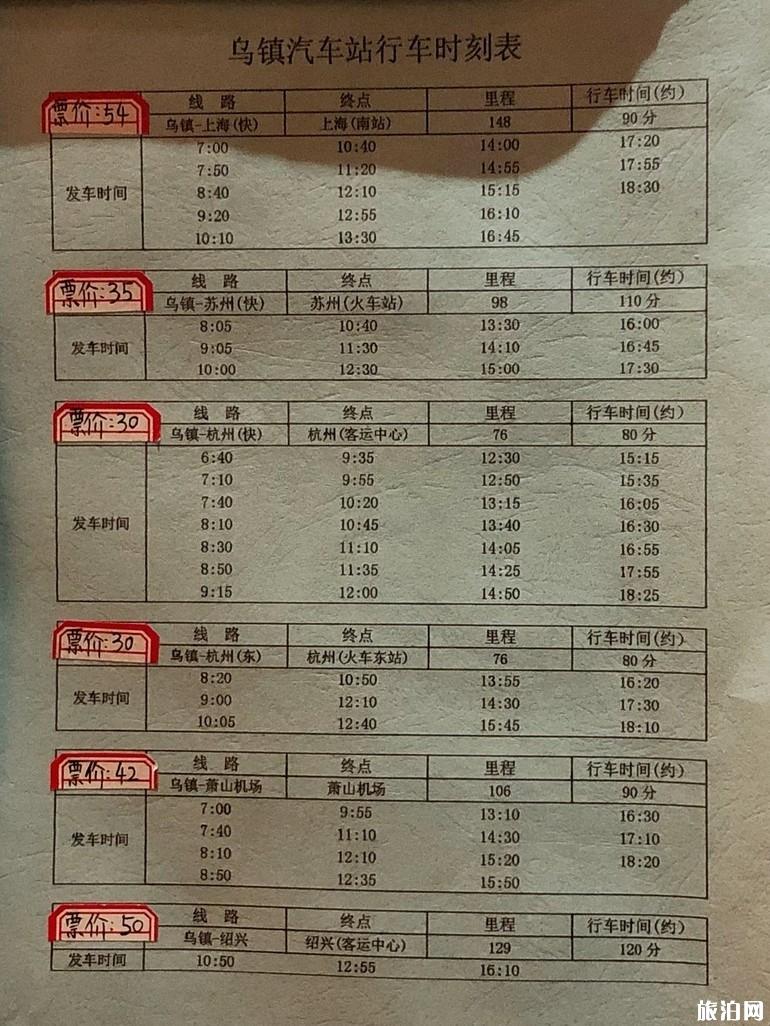 乌镇汽车站行车时刻表
票价:54 线路 终点 里程 行车时间(约)
乌镇-上海(快) 上海(南站) 148 90分
7:00 10:40 14:00 17:20
7:50 11:20 14:55 17:55
发车时间 8:40 12:10 15:15 18:30
9:20 12:55 16:10
10:10 13:30 16:45
票价:35 线路 终点 里程 行车时间(约)
乌镇-苏州(快) 苏州(火车站) 98 110分
8:05 10:40 13:30 16:00
发车时间 9:05 11:30 14:10 16:45
10:00 12:30 15:00 17:30
票价:30 线路 终点 里程 行车时间(约)
乌镇-杭州(快) 杭州(客运中心) 76 80分
6:40 9:35 12:30 15:15
7:10 9:55 12:50 15:35
7:40 10:20 13:15 16:05
发车时间 8:10 10:45 13:40 16:30
8:30 11:10 14:05 16:55
8:50 11:35 14:25 17:55
9:15 12:00 14:50 18:25
票价:30 线路 终点 里程 行车时间(约)
乌镇-杭州(东) 杭州(火车东站) 76 80分
8:20 10:50 13:55 16:20
发车时间 9:00 12:10 14:30 17:30
10:05 12:40 15:45 18:10
票价:42 线路 终点 里程 行车时间(约)
乌镇-萧山机场 萧山机场 106 90分
7:00 9:55 13:10 16:30
发车时间 7:40 11:10 14:30 17:10
8:10 12:10 15:20 18:20
8:50 12:35 15:50
票价:50 线路 终点 里程 行车时间(约)
乌镇-绍兴 绍兴(客运中心) 129 120分
发车时间 10:50 12:55 16:10
旅泊网